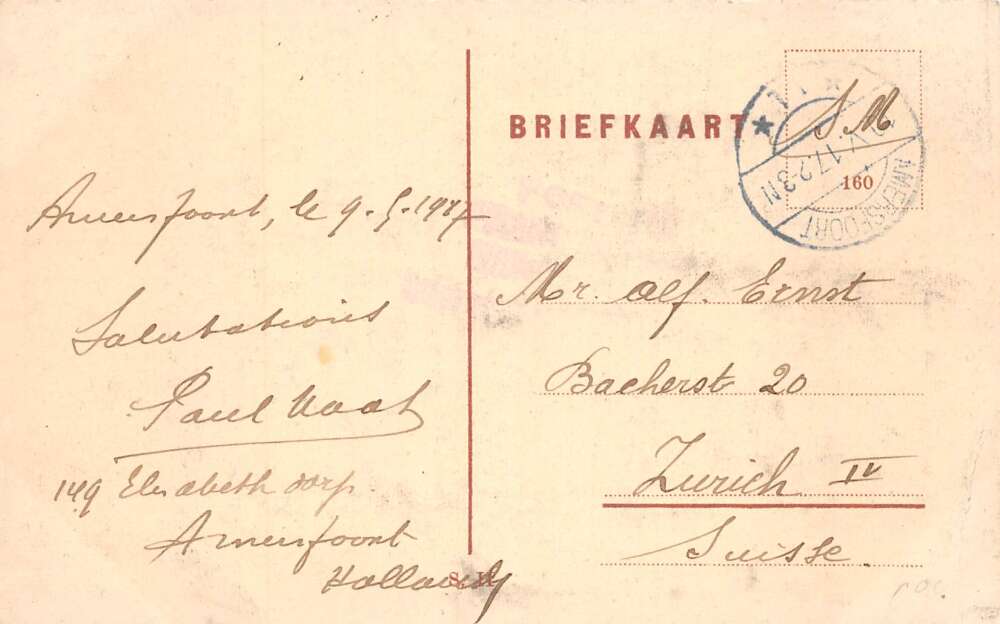 Amersfoort, le 9-5-1917
Salutations
Paul
149 Elisabeth dorp.
Amersfoort
Holland
BRIEFKAART
S.M.
160
AMERSFOORT
V.17.2-3N
Mr. Alf. Ernst
Bacherst 20
Zurich IV
Suisse.